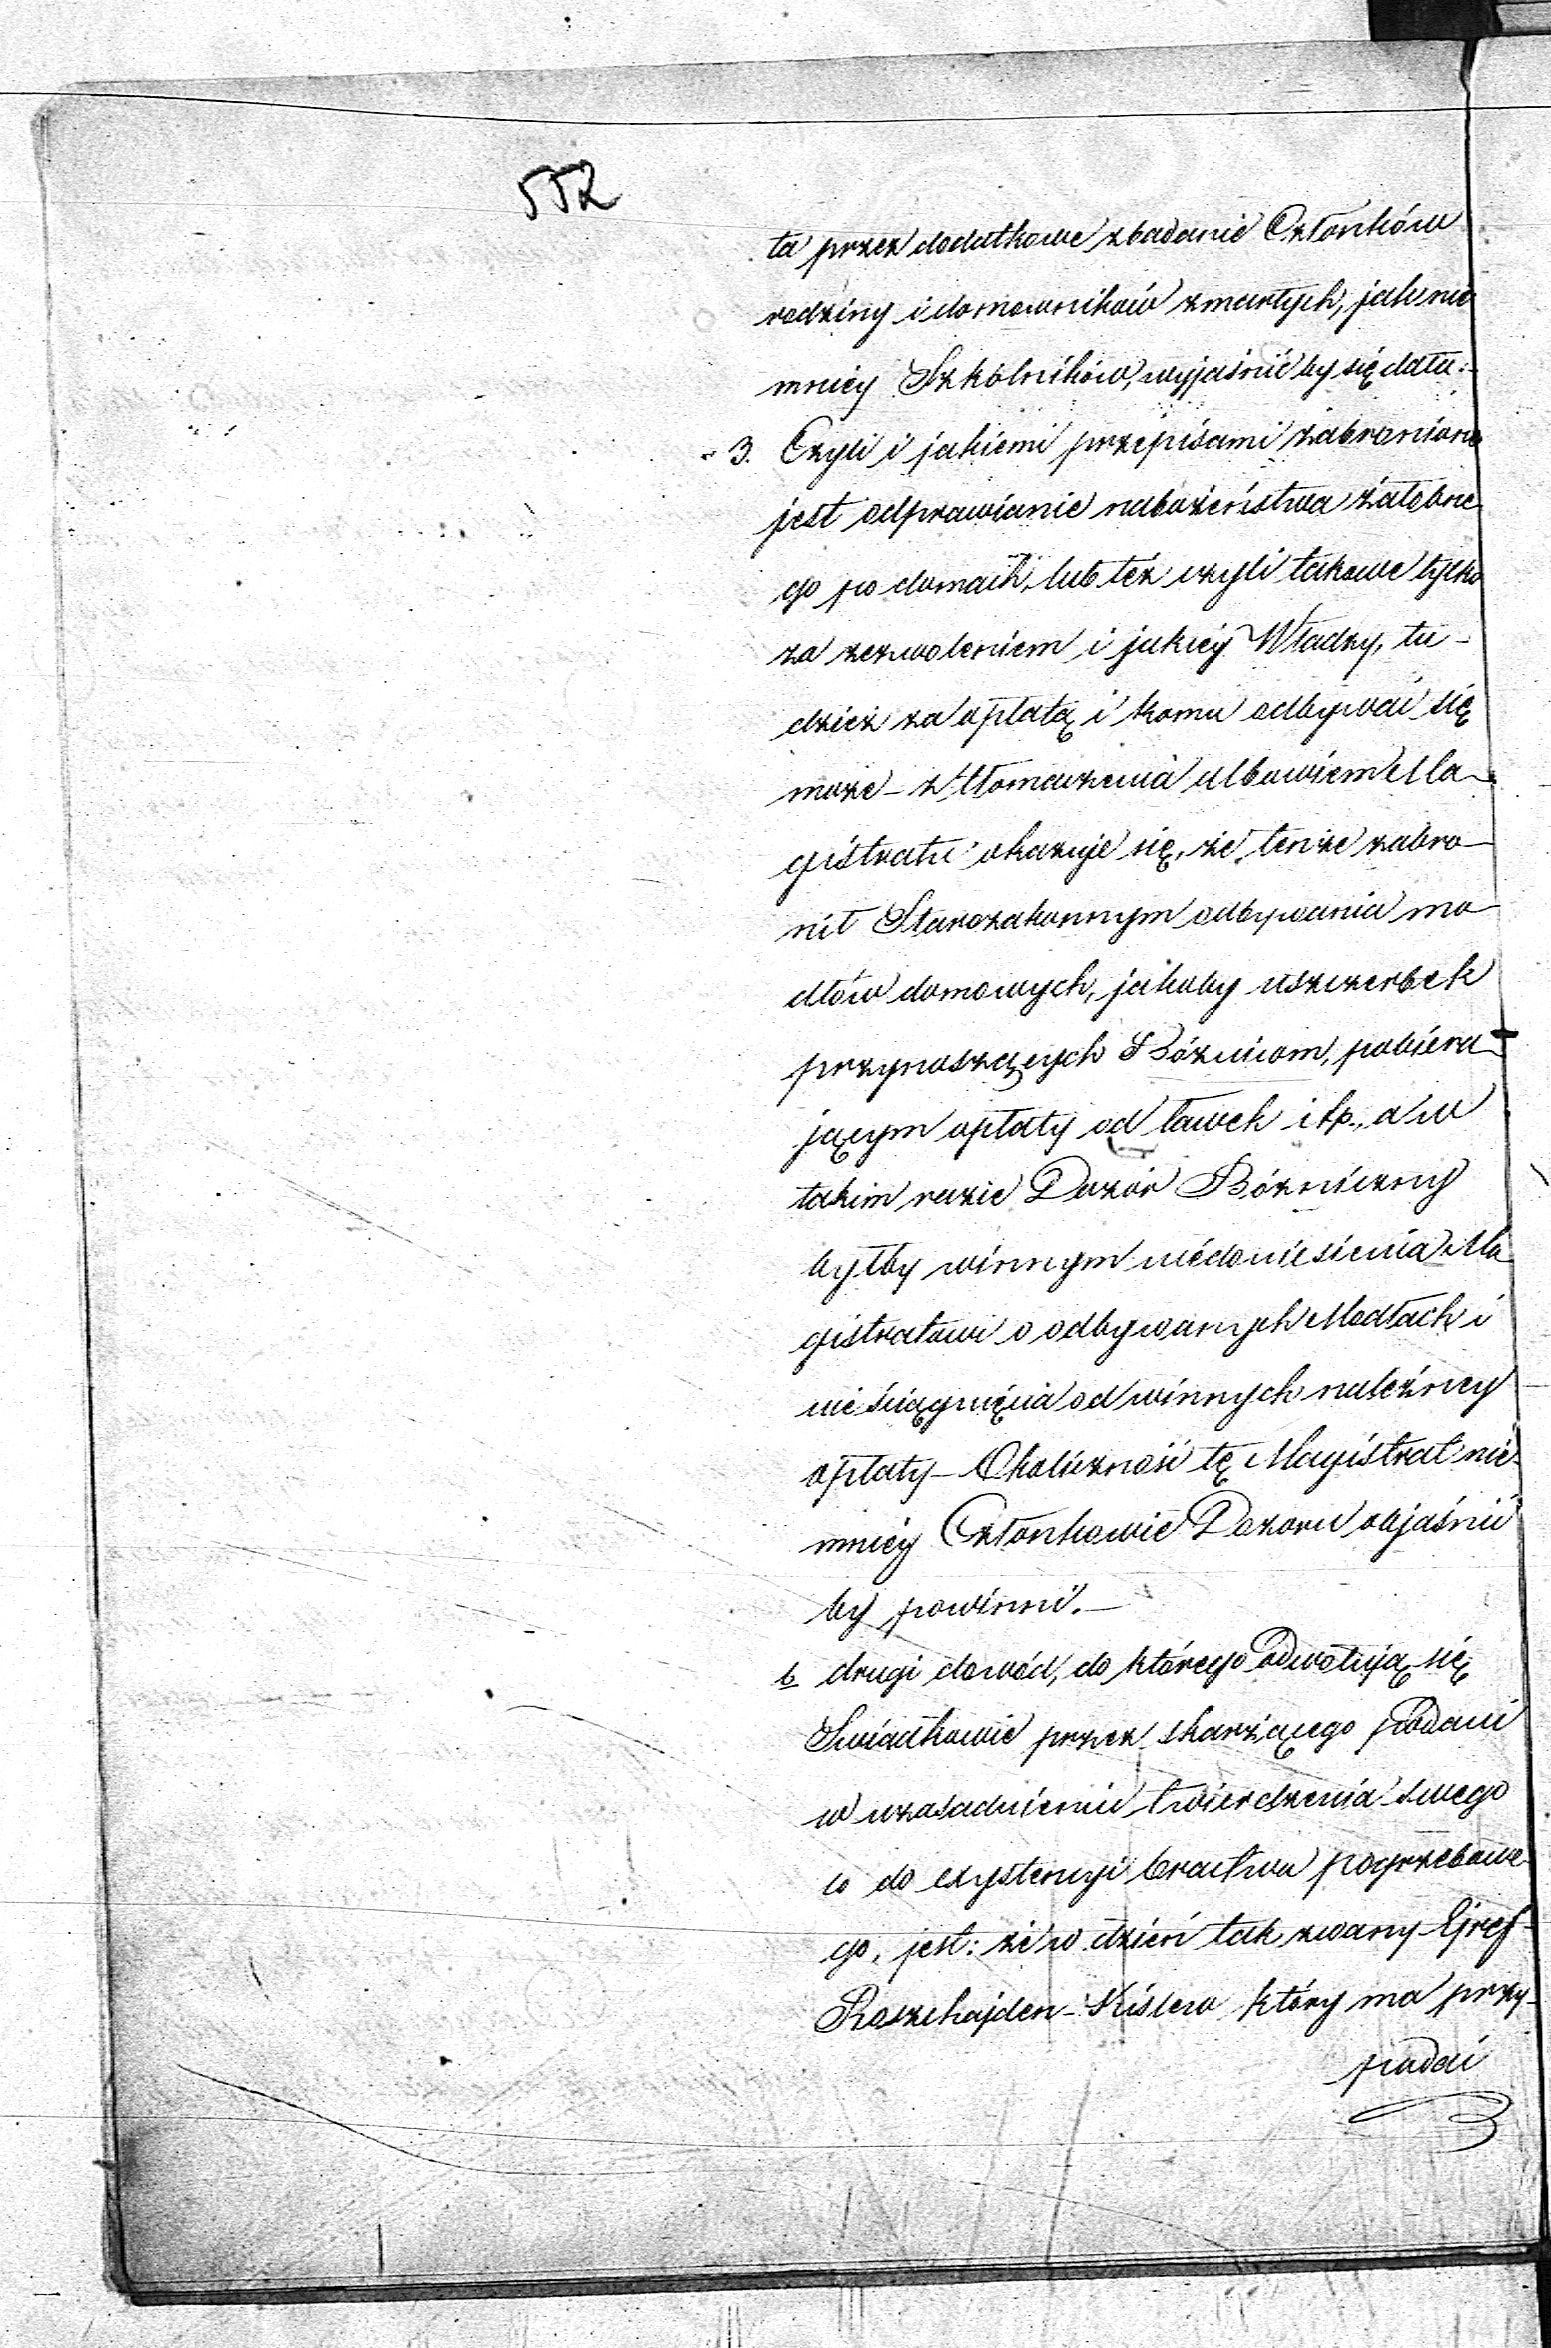 552
ta przez dodatkowe zbadanie Członków
rodziny i domowników zmarłych, jak nie
mniey Szkolników, wyjaśnić by się dała:
3. Czyli i jakiemi przepisami zabronione
jest odprawianie nabożeństwa żałobne
go po domach, lub też czyli takowe tylko
za zezwoleniem i jakiéy Władzy, tu-
dzież za opłatą i komu odbywać się
może - z tłomaczenia albowiem Ma-
gistratu okazuje się, że tenże zabro-
nił Starozakonnym odbywania mo-
dłów domowych, jakoby uszczerbek
przynoszących Bóżnicom, pobiera-
jącym opłaty od ławek i t.p., a w
takim razie Dozór Bóżniczny
byłby winnym niedoniesienia Ma
gistratowi o odbywanych Modłach i
nieściągnięcia od winnych należnej
opłaty - Okoliczność tę Magistrat nie-
mniéy Członkowie Dozoru objaśnić
by powinni. -
b drugi dowód, do którego odwołują się
Swiadkowie przez skarżącego podani
w uzasadnieniu twierdzenia swego
co do exystencyi bractwa pogrzebowe-
go, jest: że w dzień tak zwany Ejref-
Roszchajden - Kislew który ma przy-
padać